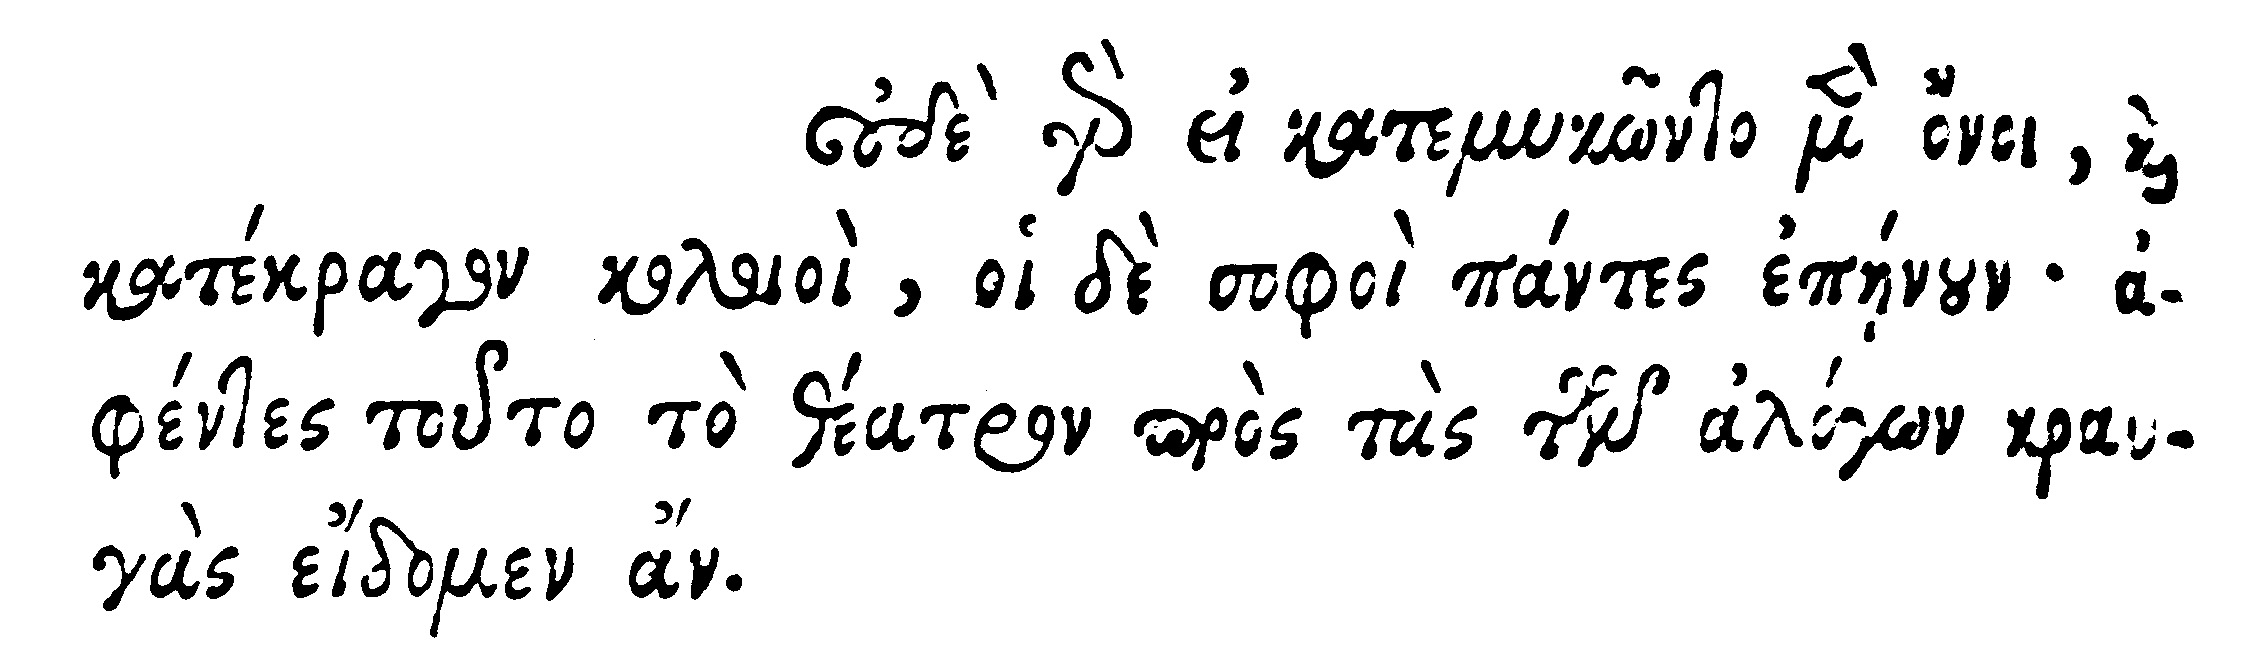 οὐδὲ γὰρ εἰ κατεμυκῶντο μὲν ὄνοι, καὶ
κατέκραγον κολοιοὶ, οἱ δὲ σοφοὶ πάντες ἐπῄνουν · ἀ-
φέντες τοῦτο τὸ θέατρον πρὸς τὰς τῶν ἀλόγων κραυ-
γὰς εἴδομεν ἄν.